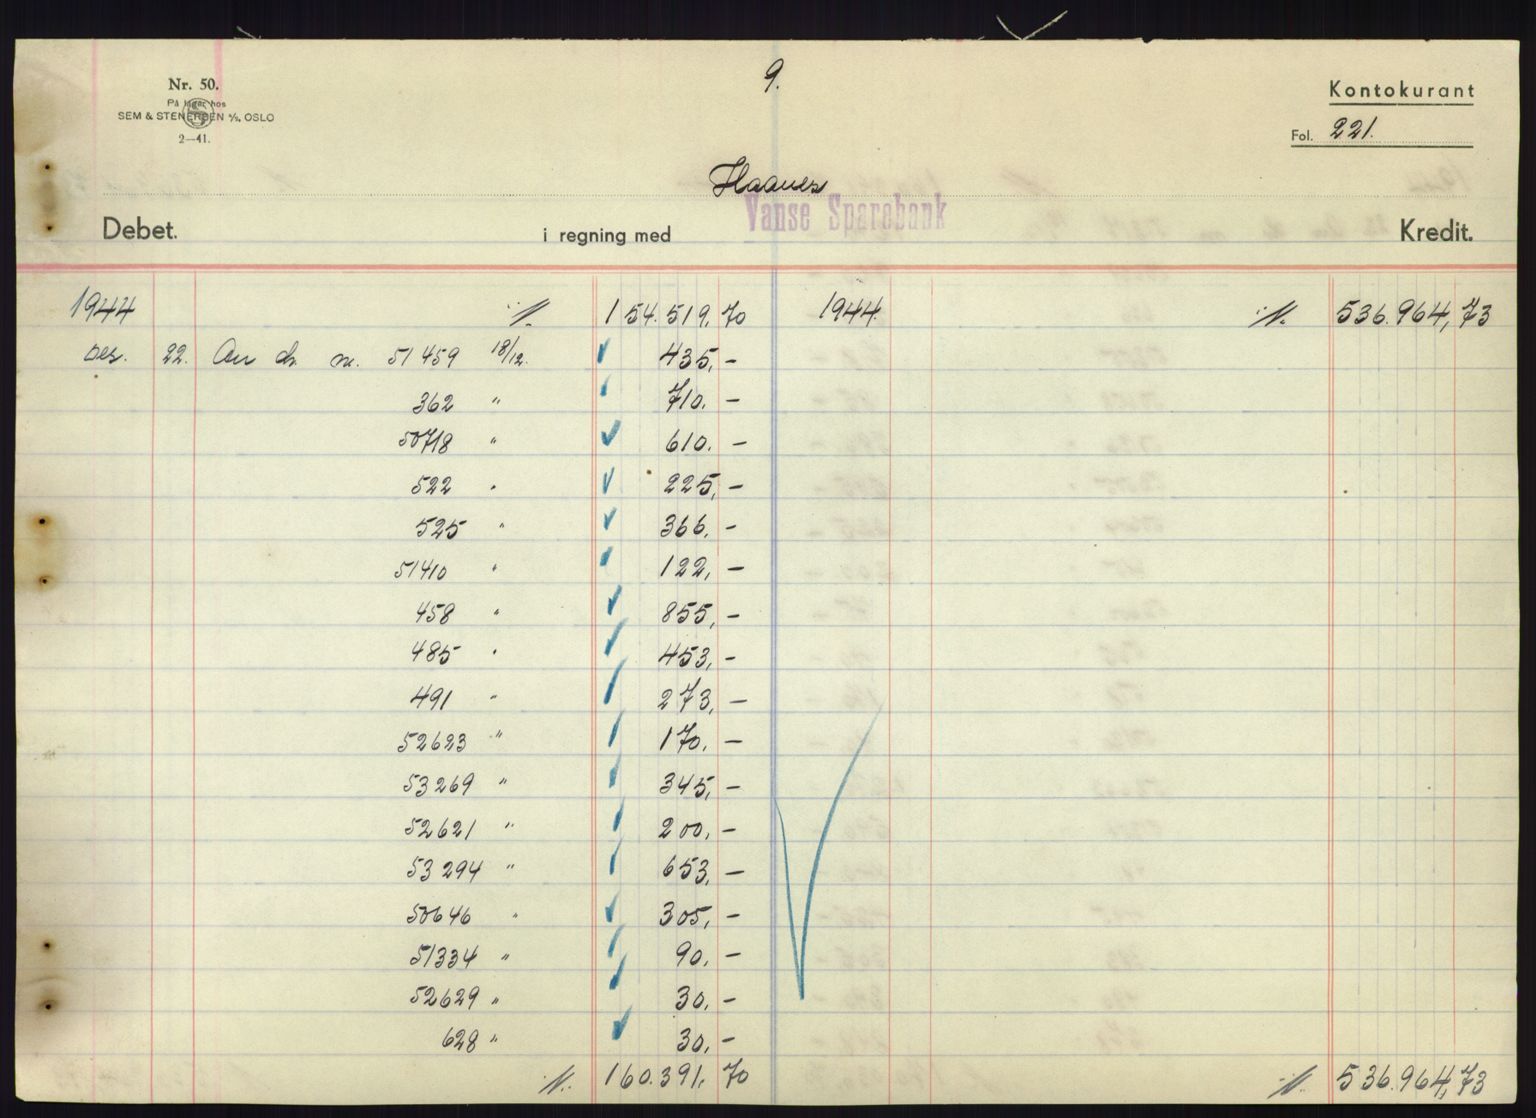 9.
Nr. 50.
På lager hos
SEM & STENERSEN A/S, OSLO
2—41.
Kontokurant
Fol. 221.
Haanes
Debet. i regning med Vanse Sparebank Kredit.
1944 154.519,70 1944. 536.964,73
Des. 22. An ch. nr. 51459 18/12. 435,-
362 " 710,-
50718 " 610.-
522 " 225,-
525 " 366.-
51410 " 122,-
458 " 855,-
485 " 453,-
491 " 273,-
52623 " 170.-
53269 " 345,-
52621 " 200,-
53294 " 653,-
50646 " 305,-
51334 " 90,-
52629 " 30,-
628 " 30,-
160.391,70 536.964,73